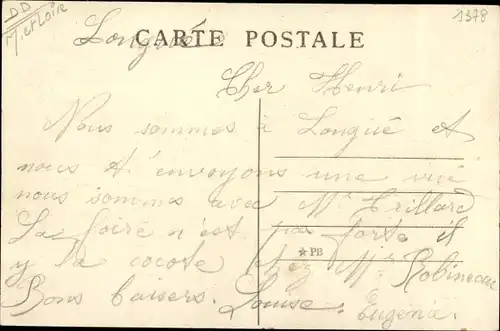 DD
M. et Loire
1378
Longué
CARTE POSTALE
Cher Henri
Nous sommes à Longué et
nous t'envoyons une vue
nous sommes avec Mr Trillard
La foire n'est pas forte il
y la cocote chez Mme Robineau
PB
Bons baisers. Louise. Eugénie.